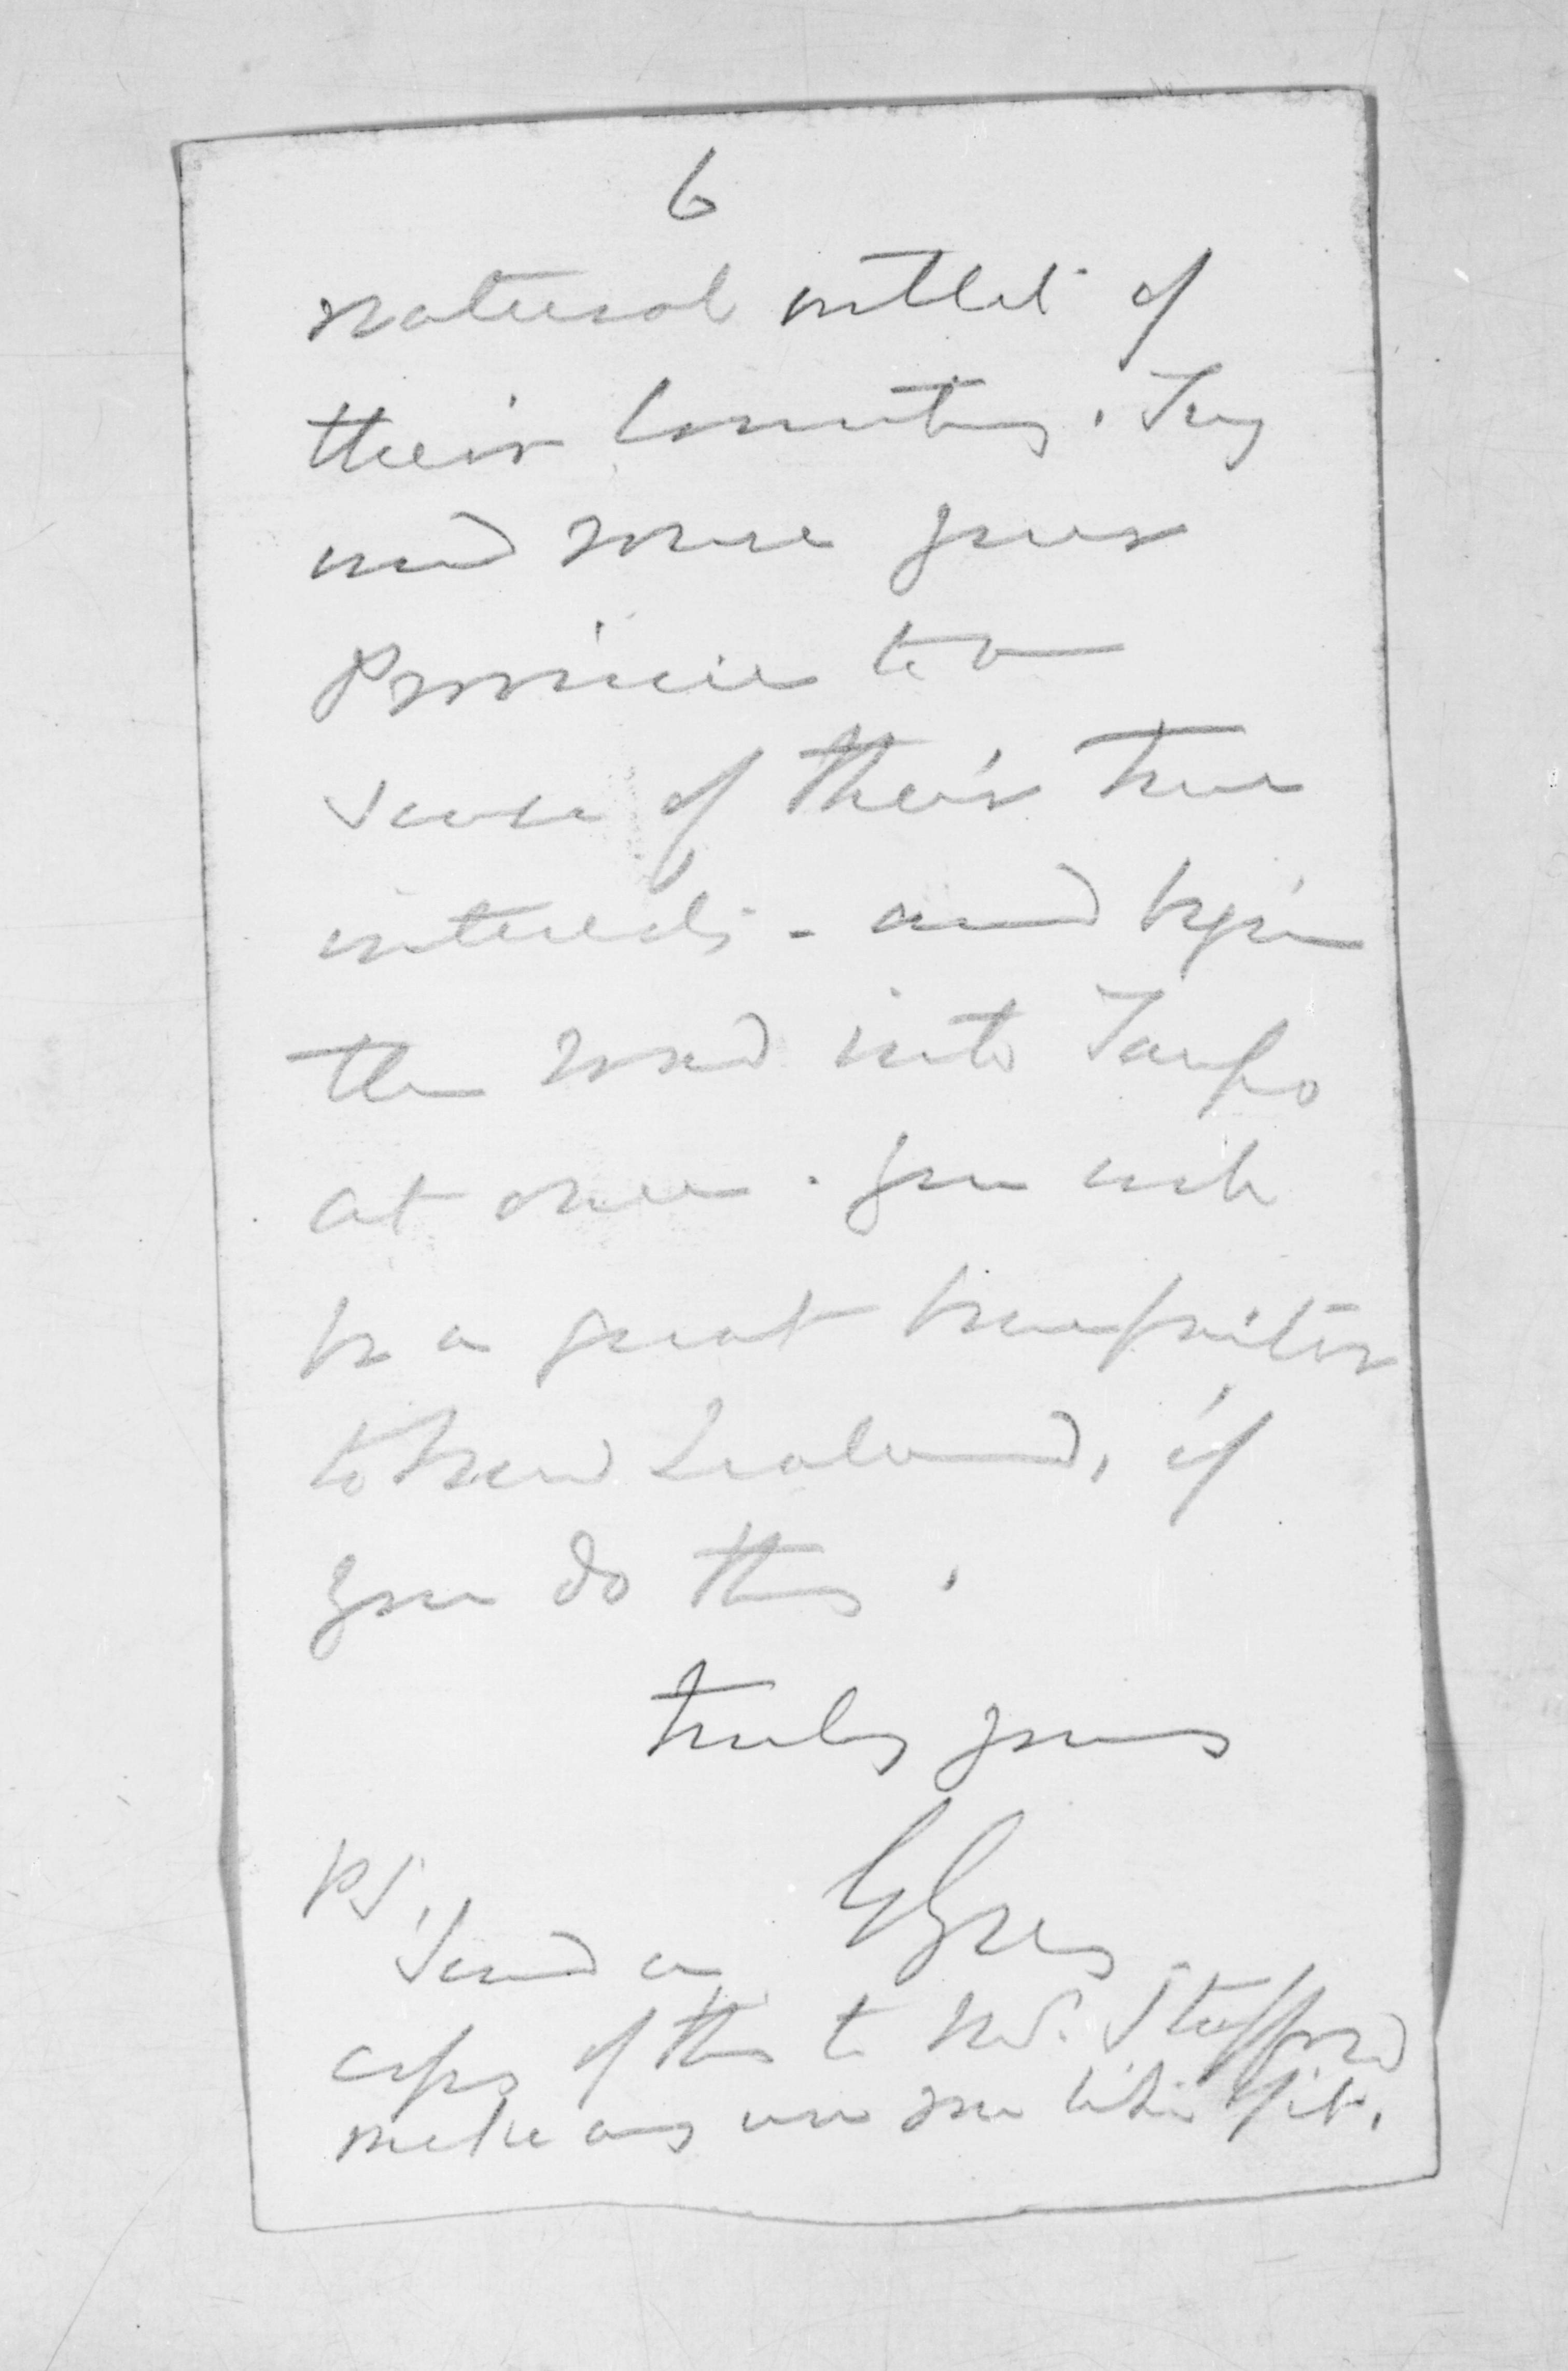 6
natural outlet of
their country. Try
and rouse your
Province to a
sense of their true
interests - and begin
the road into Taupo
at once. You will
be a great benefactor
to New Zealand, if
you do this.
truly yours
G Grey
P.S.
Send a
copy of this to Mr. Stafford
make any use you like of it.